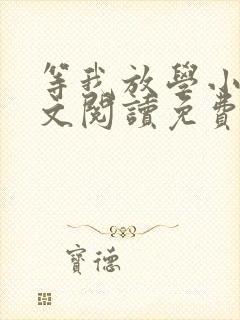 等我放學小
文閱讀免費
寶德